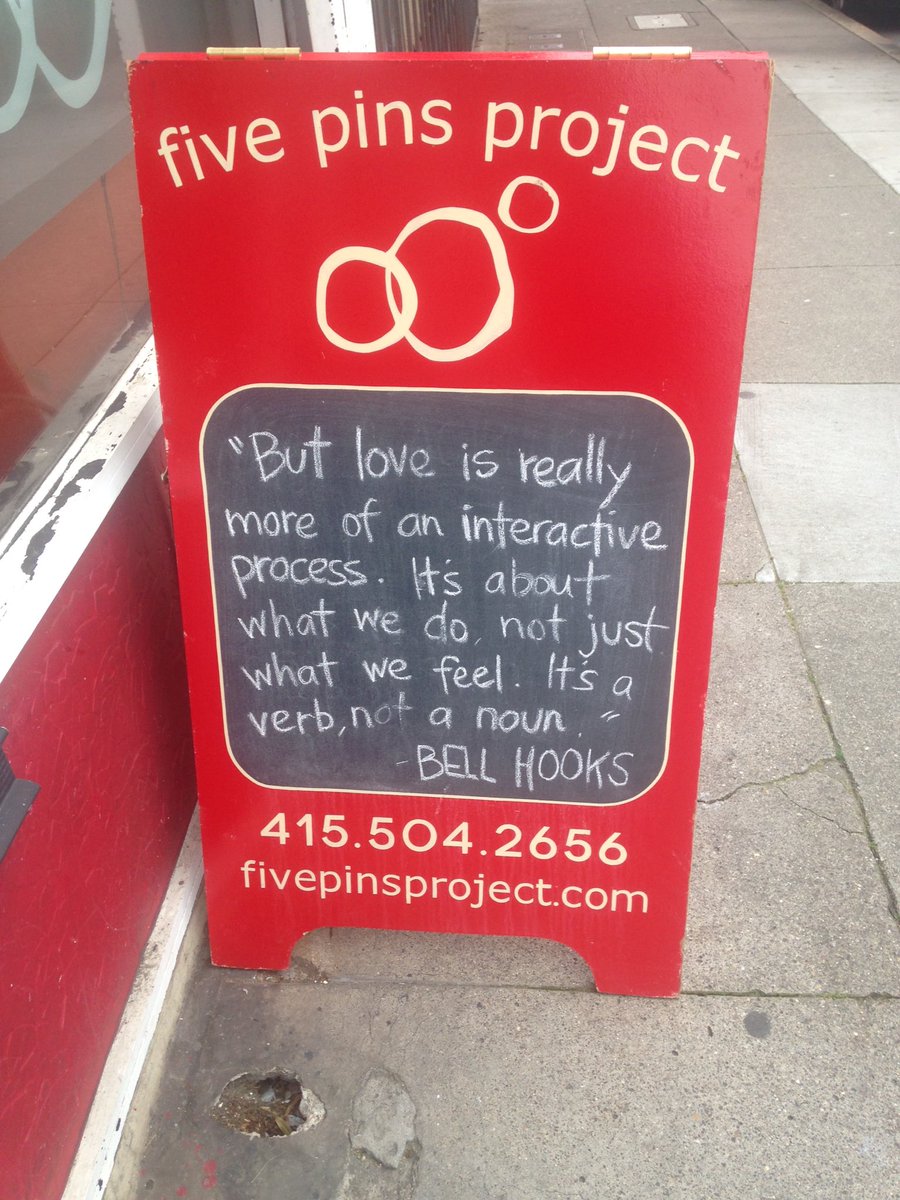 five pins project
"But love is really
more of an interactive
process. It's about
what we do, not just
what we feel. It's a
verb, not a noun."
-BELL HOOKS
415.504.2656
fivepinsproject.com